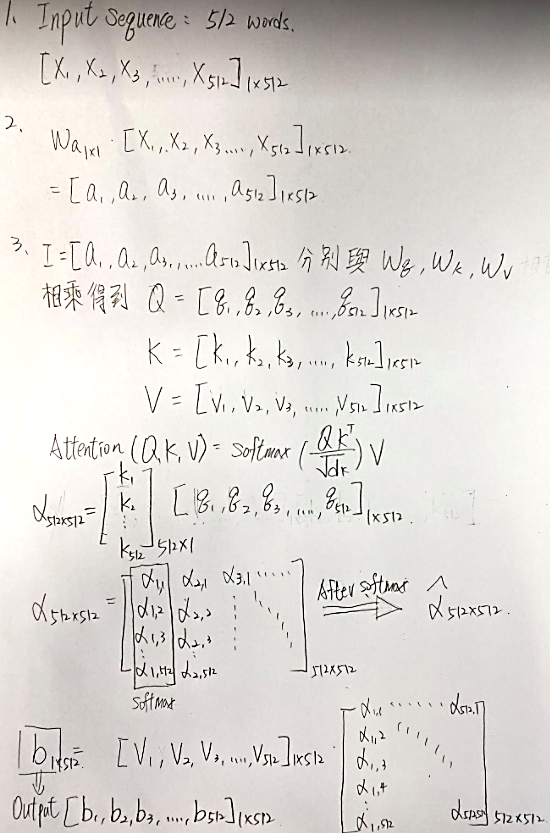 1. Input Sequence: 512 words.
[X₁, X₂, X₃, ....., X₅₁₂]₁ₓ₅₁₂
2.
Wa₁ₓ₁ · [X₁, X₂, X₃...., X₅₁₂]₁ₓ₅₁₂
= [a₁, a₂, a₃, ...., a₅₁₂]₁ₓ₅₁₂
3、I=[a₁, a₂, a₃,.....a₅₁₂]₁ₓ₅₁₂ 分別與 Wq, Wk, Wv
相乘得到 Q = [q₁, q₂, q₃, ...., q₅₁₂]₁ₓ₅₁₂
K = [k₁, k₂, k₃, ...., k₅₁₂]₁ₓ₅₁₂
V = [V₁, V₂, V₃, ....., V₅₁₂]₁ₓ₅₁₂
Attention (Q, K, V) = softmax (QKᵀ/√dk) V
α₅₁₂ₓ₅₁₂ = [k₁ k₂ ⋮ k₅₁₂]₅₁₂ₓ₁ [q₁, q₂, q₃, ...., q₅₁₂]₁ₓ₅₁₂.
α₁,₁ α₂,₁ α₃,₁ .....
α₅₁₂ₓ₅₁₂ = α₁,₂ α₂,₂ After softmax α̂₅₁₂ₓ₅₁₂.
α₁,₃ α₂,₃
⋮ ⋮
α₁,₅₁₂ α₂,₅₁₂ ₅₁₂ₓ₅₁₂
softmax
b₁ₓ₅₁₂ = [V₁, V₂, V₃, ...., V₅₁₂]₁ₓ₅₁₂ ·
α₁,₁ ...... α₅₁₂,₁
α₁,₂
α₁,₃
α₁,₄
⋮
α₁,₅₁₂ ₅₁₂ₓ₅₁₂
Output [b₁, b₂, b₃, ....., b₅₁₂]₁ₓ₅₁₂